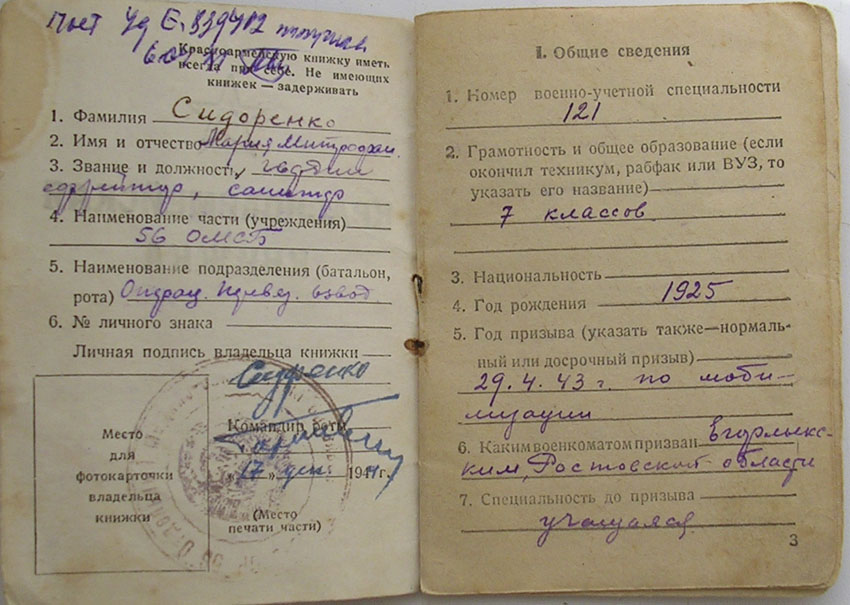 Уд Е. 839412
Красноармейскую книжку иметь
всегда при себе. Не имеющих
книжек — задерживать
1. Фамилия Сидоренко
2. Имя и отчество Мария Митрофан.
3. Звание и должность гвардии
ефрейтор, санитар
4. Наименование части (учреждения)
56 ОМСБ
5. Наименование подразделения (батальон,
рота) Операц. перевяз. взвод
6. № личного знака
Личная подпись владельца книжки
Сидоренко
Командир роты
„17" 194 г.
Место
для
фотокарточки
владельца
книжки
(Место
печати части)
I. Общие сведения
1. Номер военно-учетной специальности
121
2. Грамотность и общее образование (если
окончил техникум, рабфак или ВУЗ, то
указать его название)
7 классов
3. Национальность
4. Год рождения 1925
5. Год призыва (указать также—нормаль-
ный или досрочный призыв)
29.4.43 г. по моби-
лизации
6. Каким военкоматом призван Егорлыкс-
ким, Ростовской области
7. Специальность до призыва
учащаяся
3